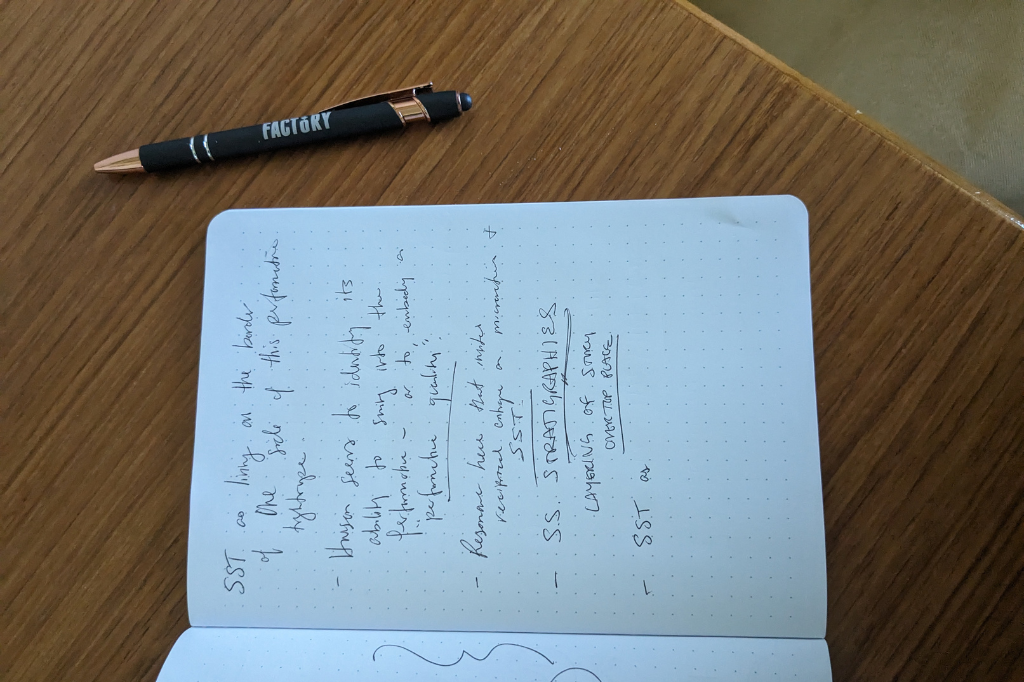 FACTORY
SST as living on the border
of one side of this performative
tightrope.
- Unison seems to identify its
ability to swing into the
performative - or to embody a
"performative quality".
- Resonance here that invites
reciprocal critique on +
SST.
- S.S. STRATIGRAPHIES
LAYERING OF STORY
OVERTOP PLACE
- SST as